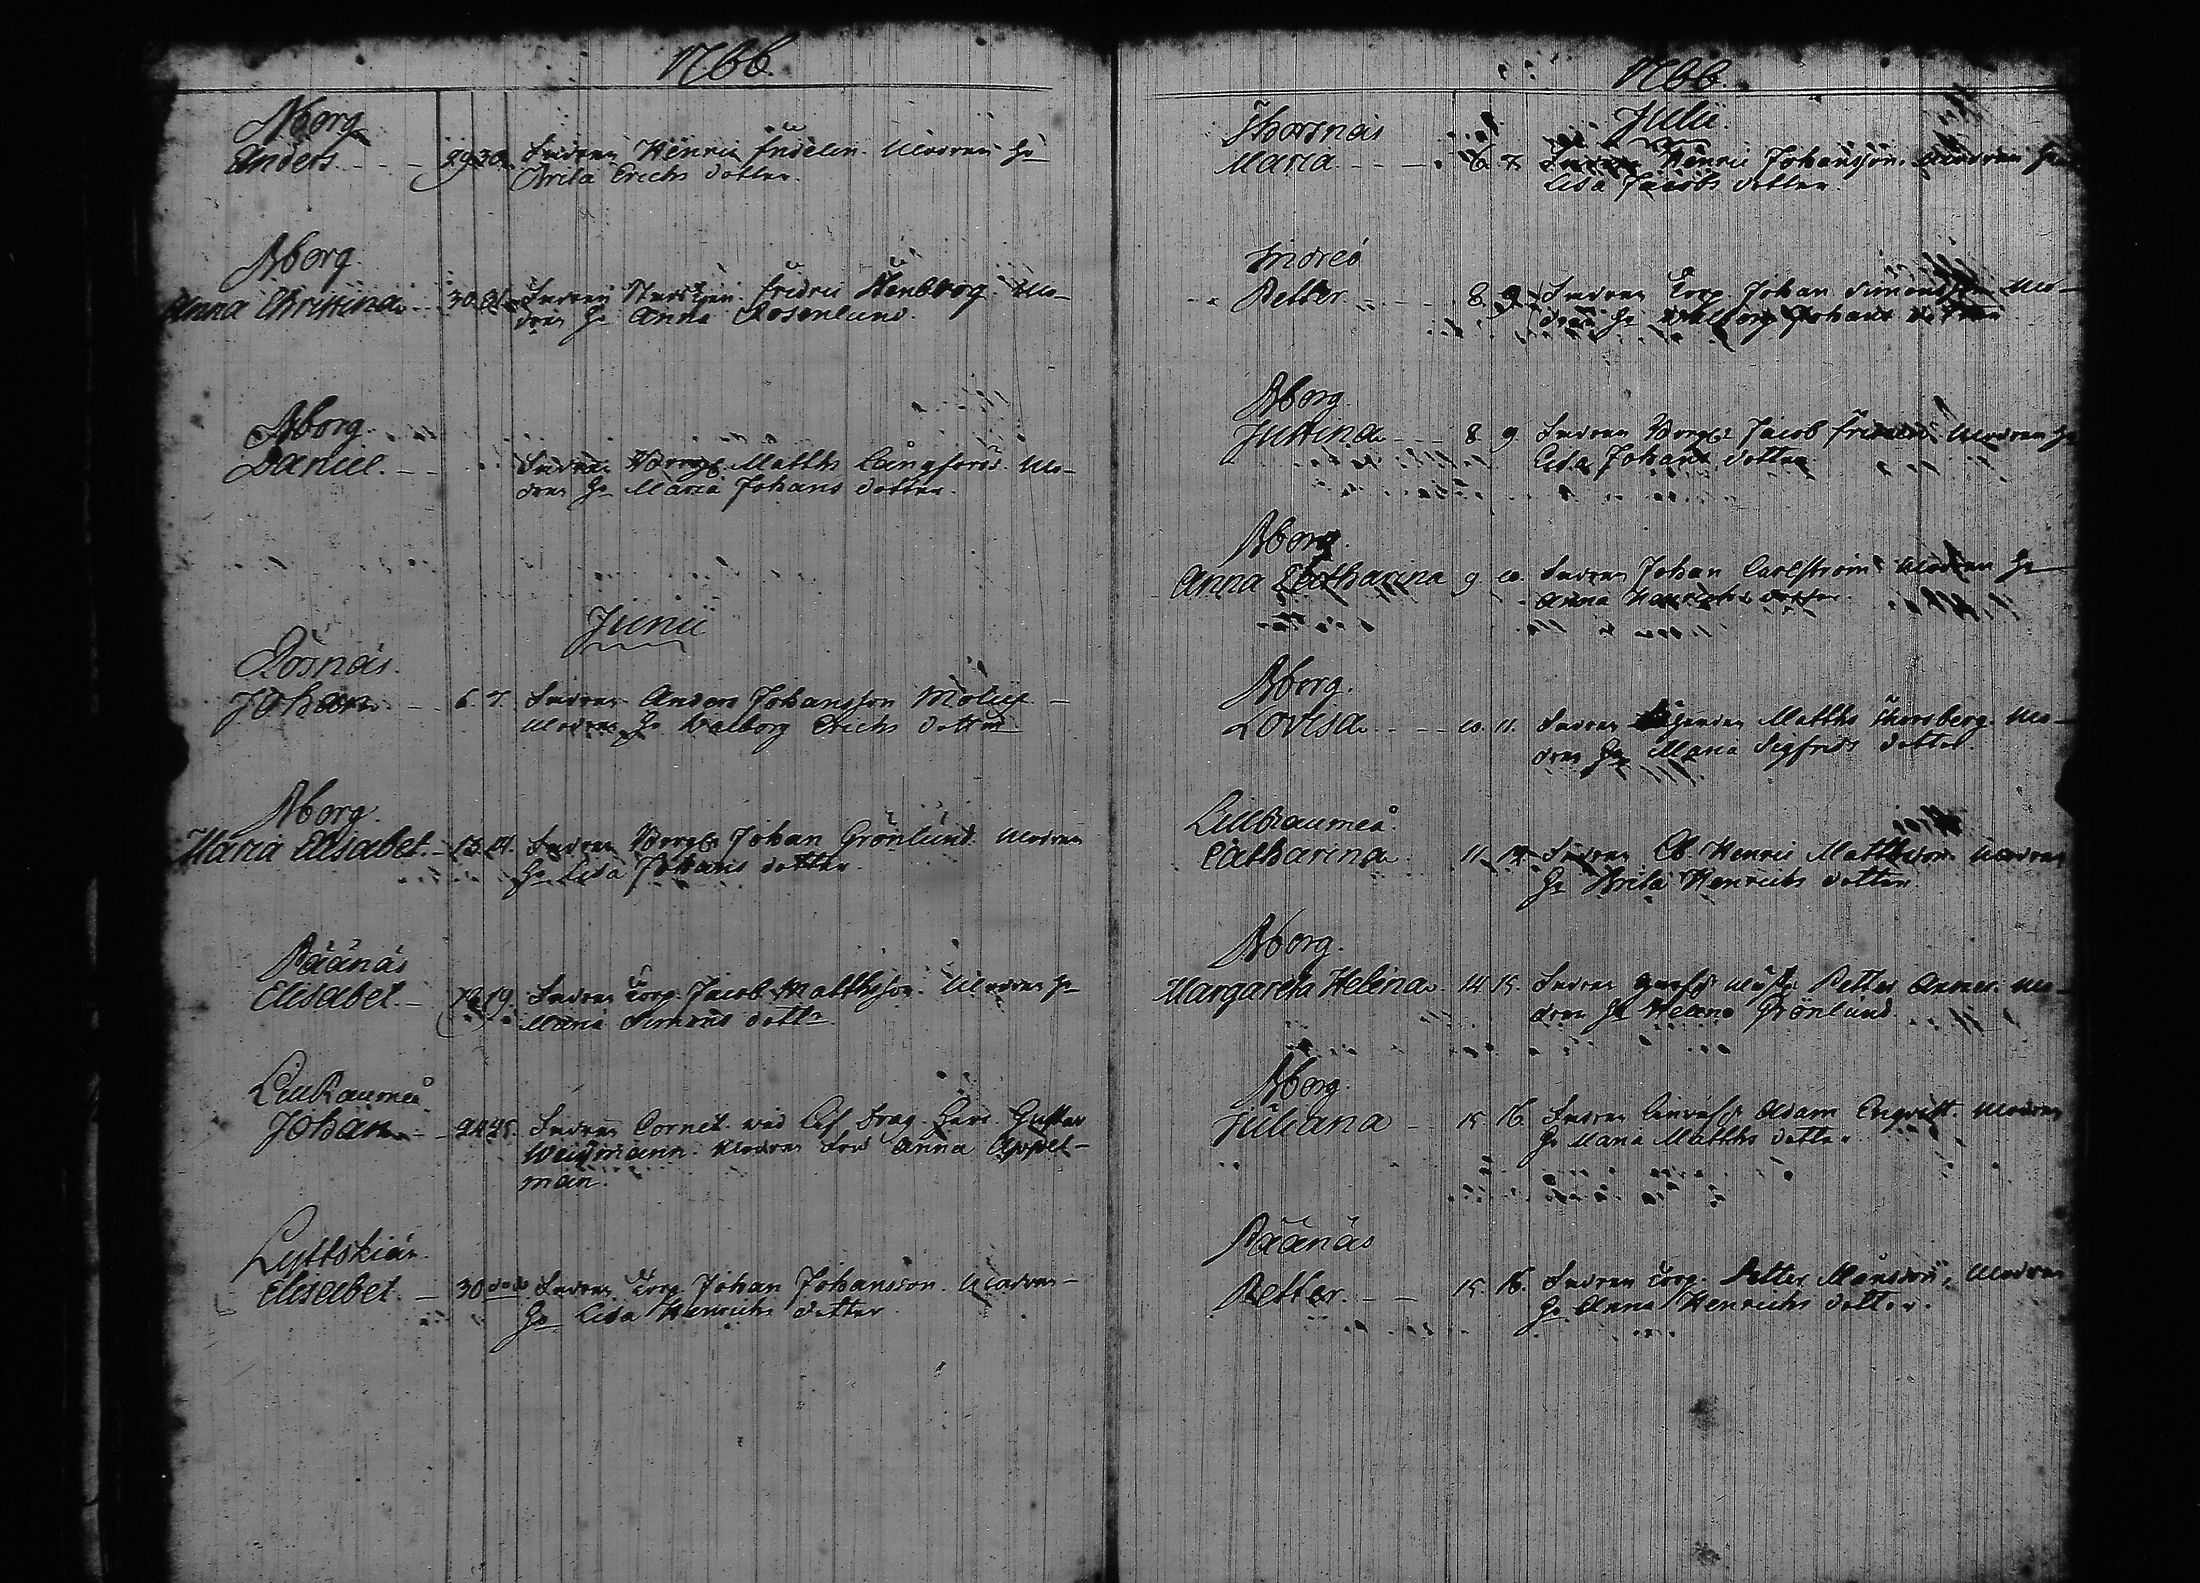 1766.
Aborg
Anders 29 30 Fadren Henric Modren Ho
Brita Erichs dotter.
Aborg
Anna Christina 30 31 Fadren Fridric Stenborg Mo-
dren Ho Anna Rosenlund.
Aborg.
Daniel. Fadren Borg. Matths Långfors. Mo-
dren Ho Maria Johans dotter.
Junii
Rosnäs.
Johan 6. 7. Fadren Anders Johansson
Modren Ho Walborg Erichs dotter
Aborg.
Maria Elisabet. 13. 14. Fadren Borg. Johan Grönlund. Modren
Ho Lisa Johans dotter.
Päänäs
Elisabet. 18 19. Fadren Torp. Jacob Matthsson. Modren Ho
Maria Simons dottr
LillRaumå
Johan 24 25. Fadren Cornet. wid Lif Drag. Gustav
Modren Anna
man.
Lyttskiär.
Elisabet. 30 dodo Fadren Torp. Johan Johansson. Modren
Ho Lisa Henrichs dotter
1766.
Julii.
Thorsnäs
Maria 6. 7. Fadren Henric Johansson. Modren Ho
Lisa Jacobs dotter.
Indreö
Petter. 8. 9. Fadren Torp. Johan Simonsson Mo-
dren Ho Walborg Johans dotter
Aborg.
Justina 8 9. Fadren Borg. Jacob Modren Ho
Lisa Johans dotter
Aborg.
Anna Catharina 9 10. Fadren Johan Carlström Modren Ho
Anna Henrichs dotter.
Aborg.
Lovisa 10. 11. Fadren Matths Thorsberg. Mo-
dren Ho Maria Sigfrids dotter.
LillRaumå.
Catharina 11. 12. Fadren Henric Matthsson. Modren
Ho Brita Henrichs dotter.
Aborg.
Margareta Helena 14 15. Fadren Petter Mo-
dren Ho Helena Grönlund.
Aborg.
Juliana 15 16. Fadren Adam Engvist. Modren
Ho Maria Matths dotter.
Päänäs
Petter. 15. 16. Fadren Torp. Petter Månsson, Modren
Ho Anna Henrichs dotter.